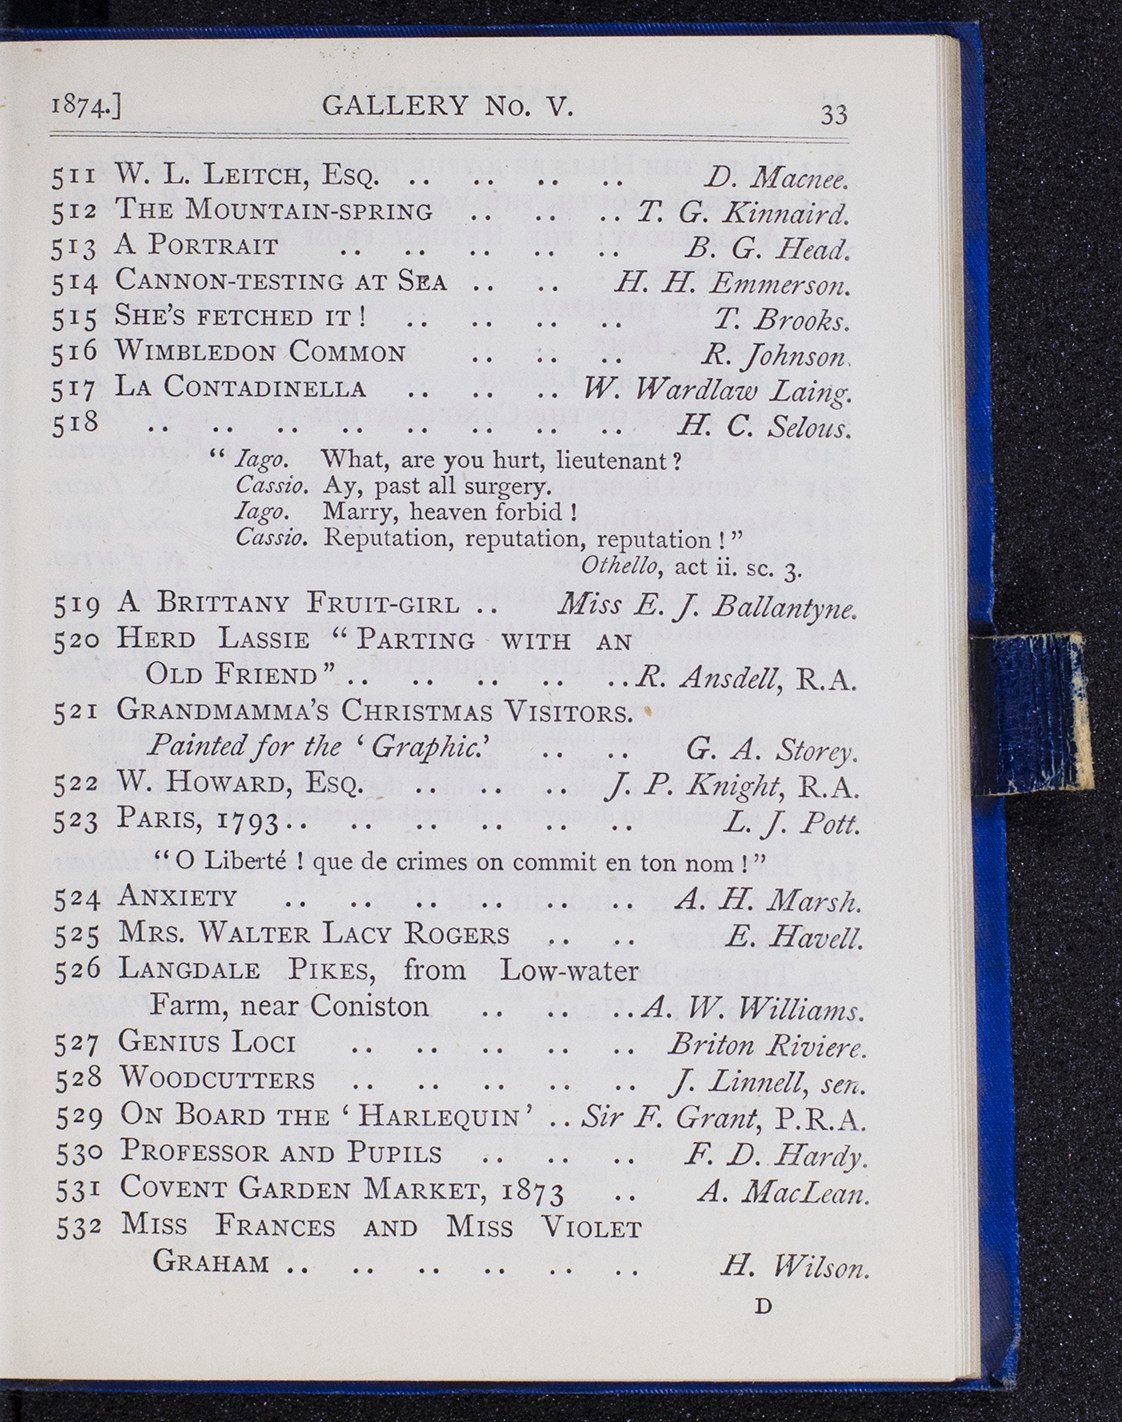 1874.] GALLERY No. V. 33
511 W. L. LEITCH, ESQ. .. .. .. .. D. Macnee.
512 THE MOUNTAIN-SPRING .. .. .. T. G. Kinnaird.
513 A PORTRAIT .. .. .. .. .. B. G. Head.
514 CANNON-TESTING AT SEA .. .. H. H. Emmerson.
515 SHE'S FETCHED IT! .. .. .. .. T. Brooks.
516 WIMBLEDON COMMON .. .. .. R. Johnson.
517 LA CONTADINELLA .. .. .. W. Wardlaw Laing.
518 .. .. .. .. .. .. .. .. H. C. Selous.
“Iago. What, are you hurt, lieutenant?
Cassio. Ay, past all surgery.
Iago. Marry, heaven forbid!
Cassio. Reputation, reputation, reputation!”
Othello, act ii. sc. 3.
519 A BRITTANY FRUIT-GIRL .. Miss E. J. Ballantyne.
520 HERD LASSIE “PARTING WITH AN
OLD FRIEND” .. .. .. .. .. R. Ansdell, R.A.
521 GRANDMAMMA'S CHRISTMAS VISITORS.
Painted for the ‘Graphic.’ .. .. G. A. Storey.
522 W. HOWARD, ESQ. .. .. .. J. P. Knight, R.A.
523 PARIS, 1793 .. .. .. .. .. .. L. J. Pott.
“O Liberté ! que de crimes on commit en ton nom !”
524 ANXIETY .. .. .. .. .. .. A. H. Marsh.
525 MRS. WALTER LACY ROGERS .. .. E. Havell.
526 LANGDALE PIKES, from Low-water
Farm, near Coniston .. .. .. A. W. Williams.
527 GENIUS LOCI .. .. .. .. .. Briton Riviere.
528 WOODCUTTERS .. .. .. .. .. J. Linnell, sen.
529 ON BOARD THE ‘HARLEQUIN’ .. Sir F. Grant, P.R.A.
530 PROFESSOR AND PUPILS .. .. .. F. D. Hardy.
531 COVENT GARDEN MARKET, 1873 .. A. MacLean.
532 MISS FRANCES AND MISS VIOLET
GRAHAM .. .. .. .. .. .. H. Wilson.
D